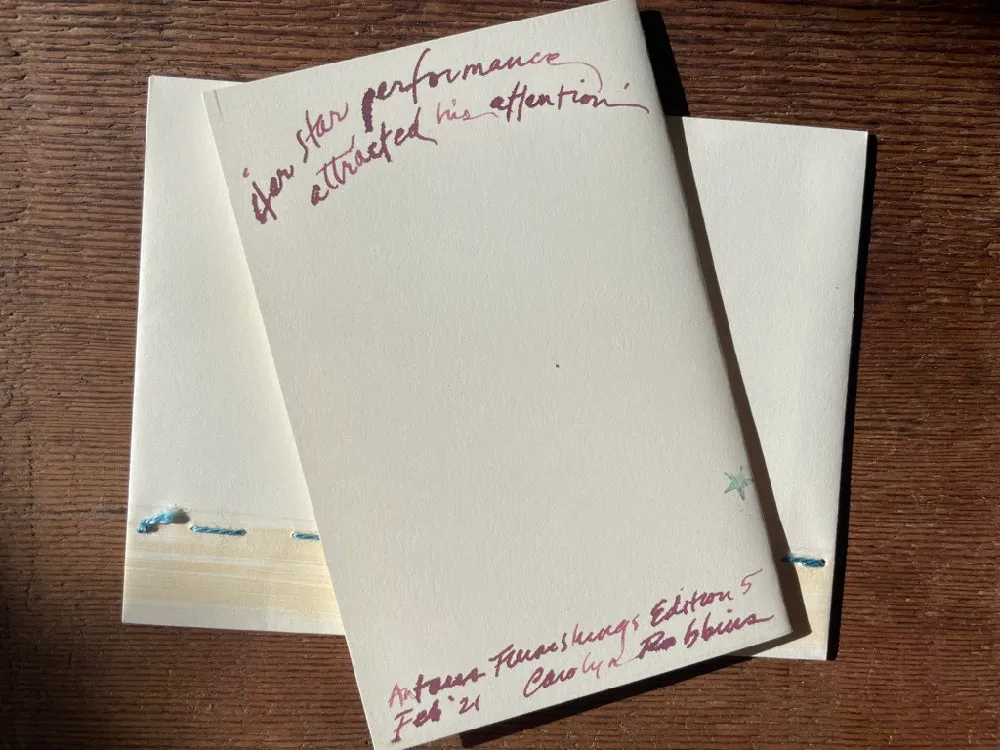 "Her star performance
attracted his attention"
Furnishings Edition 5
Feb '21 Carolyn Robbins